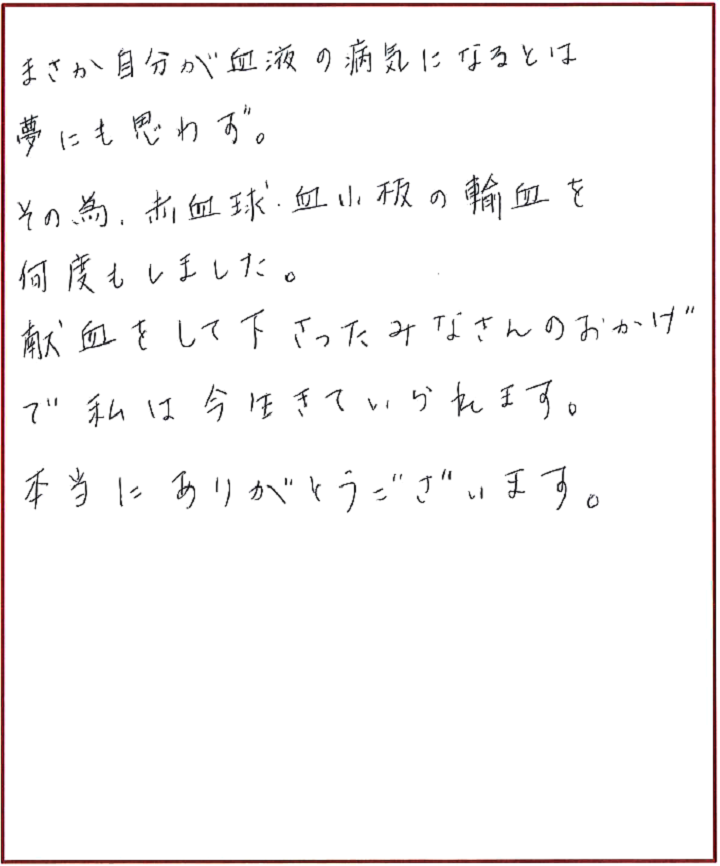 まさか自分が血液の病気になるとは
夢にも思わず。
その為、赤血球・血小板の輸血を
何度もしました。
献血をして下さったみなさんのおかげ
で私は今生きていられます。
本当にありがとうございます。